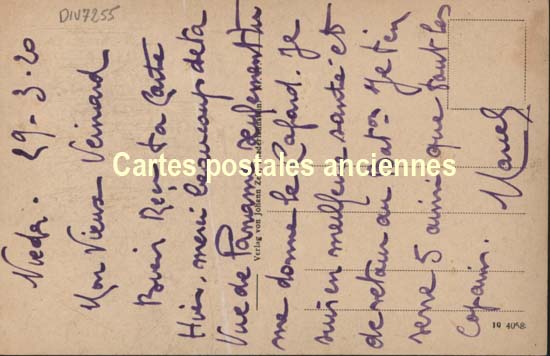 DIV7255
Nieder. 29-3-20
Mon Vieux Veinard
Bien Reçu ta Carte
Hier, merci beaucoup de ta
Vue de Paname seulement tu
me donne le Cafard. Je
suis en meilleur santé et
de retour au Bat on Je t'en
serre 5 ainsi que tout les
Copains.
Cartes postales anciennes
Verlag von Johann
19 4068